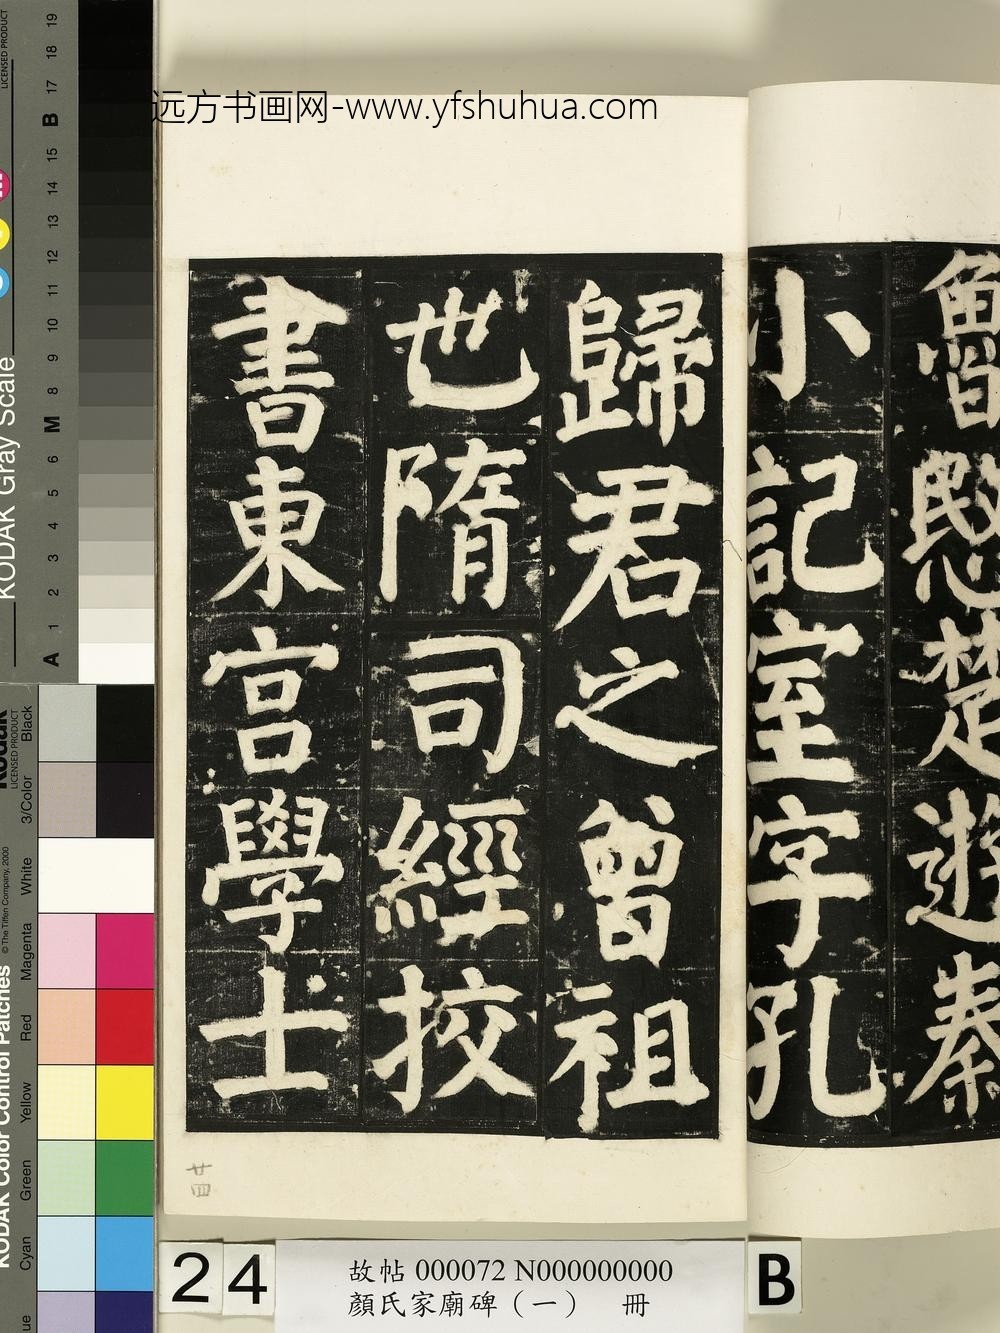 远方书画网-www.yfshuhua.com
魯
愍楚遊秦
小記室字孔
歸君之曾祖
世隋司經挍
書東宮學士
廿四
24
故帖 000072 N000000000
顏氏家廟碑（一） 冊
B
KODAK Gray Scale
LICENSED PRODUCT
A 1 2 3 4 5 6 M 8 9 10 11 12 13 14 15 B 17 18 19
KODAK Color Control Patches
© The Tiffen Company, 2000
Kodak
LICENSED PRODUCT
Cyan Green Yellow Red Magenta White 3/Color Black